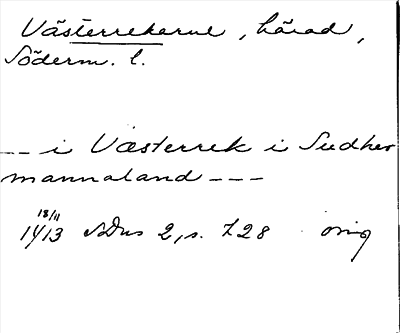 Västerrekarne, härad,
Söderm. l.
-- i Vœsterrek i Sudher
mannaland ---
18/11
1413 SDns 2, s. 728 orig